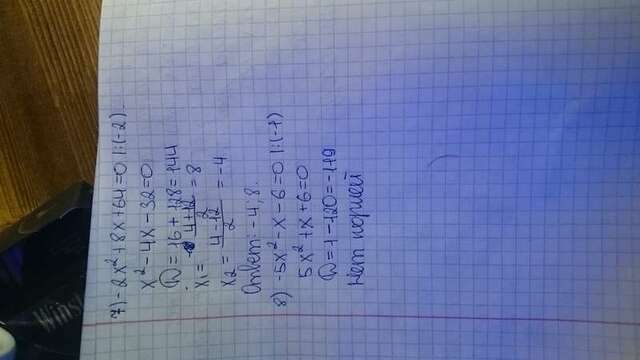 Winst
7) -2x² + 8x + 64 = 0 |:(-2).
x² - 4x - 32 = 0
D = 16 + 128 = 144
x₁ = (4+12)/2 = 8
x₂ = (4-12)/2 = -4
Ответ: -4; 8.
8) -5x² - x - 6 = 0 |:(-1)
5x² + x + 6 = 0
D = 1 - 120 = -119
Нет корней